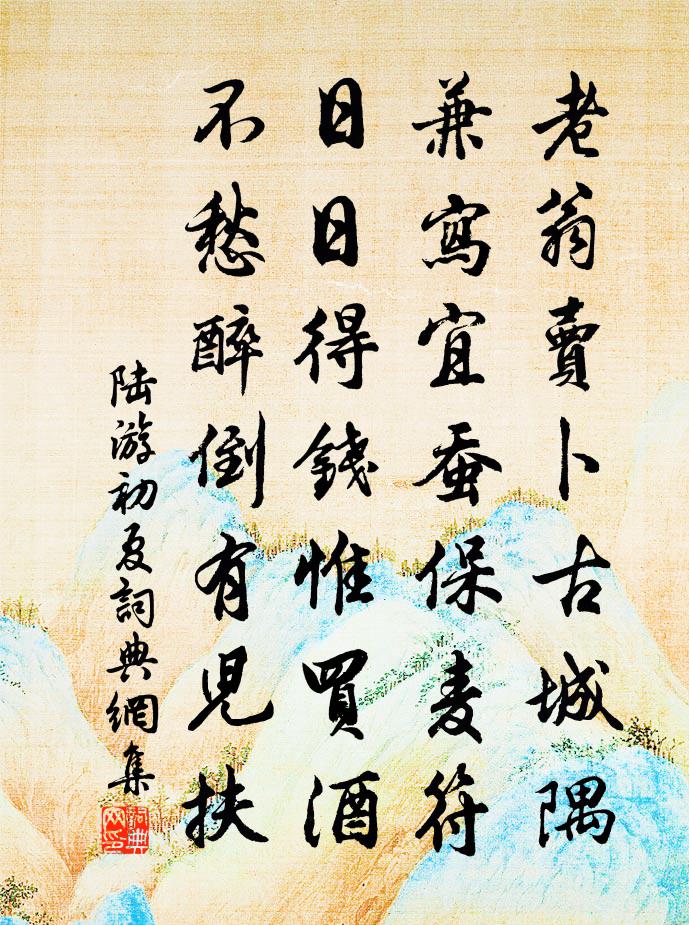 老翁賣卜古城隅
兼寫宜蚕保麦符
日日得錢惟買酒
不愁醉倒有児扶
陆游初夏詞典網集
詞典網印